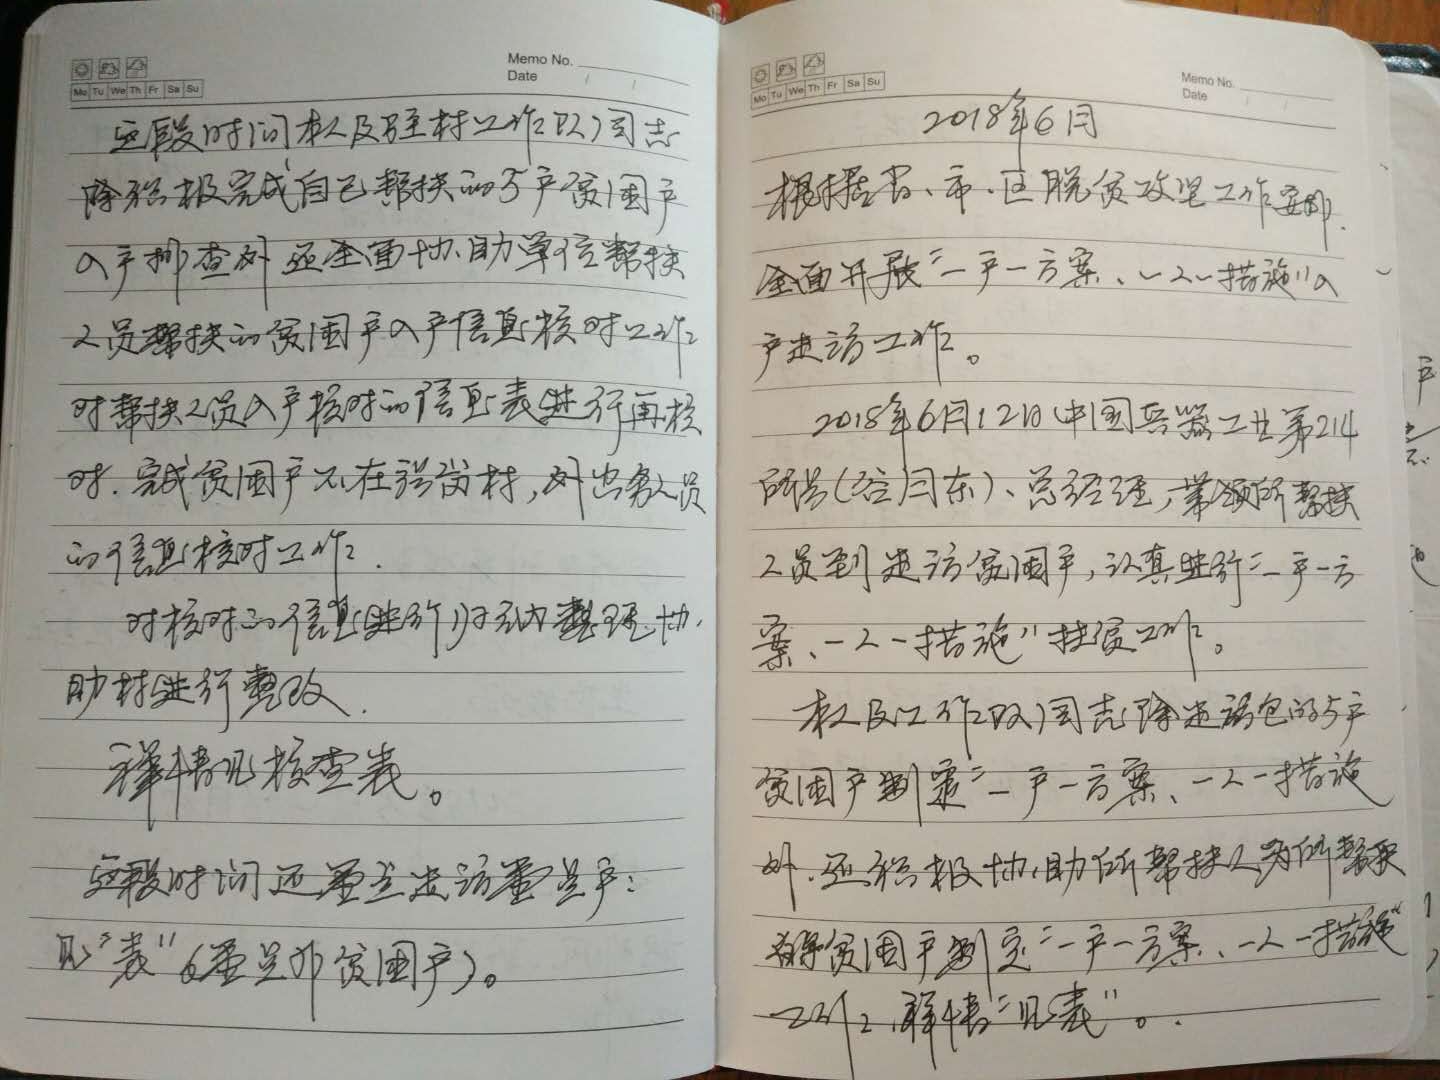 Memo No.
Date
Mo Tu We Th Fr Sa Su
这段时间本人及驻村工作队同志
除积极完成自己帮扶的5户贫困户
入户排查外 还全面协助单位帮扶
人员帮扶的贫困户入户信息核对工作
对帮扶人员入户核对的信息表进行再核
对.完成贫困户不在张岗村,外出务人员
的信息核对工作.
对核对的信息进行归纳整理,协
助村进行整改.
详情见核查表。
这段时间还重点走访重点户:
见"表"(重点外贫困户)。
Memo No.
Date
Mo Tu We Th Fr Sa Su
2018年6月
根据省、市、区脱贫攻坚工作安部.
全面开展"一户一方案、一人一措施"入
户走访工作。
2018年6月12日中国兵器工业第214
所长(闫东)、总经理,带领所帮扶
人员到走访贫困户,认真进行"一户一方
案、一人一措施"扶贫工作。
本人及工作队同志除走访包的5户
贫困户制定"一户一方案、一人一措施
外.还积极协助所帮扶人为所帮扶
贫困户制定"一户一方案、一人一措施"
工作,详情"见表"。